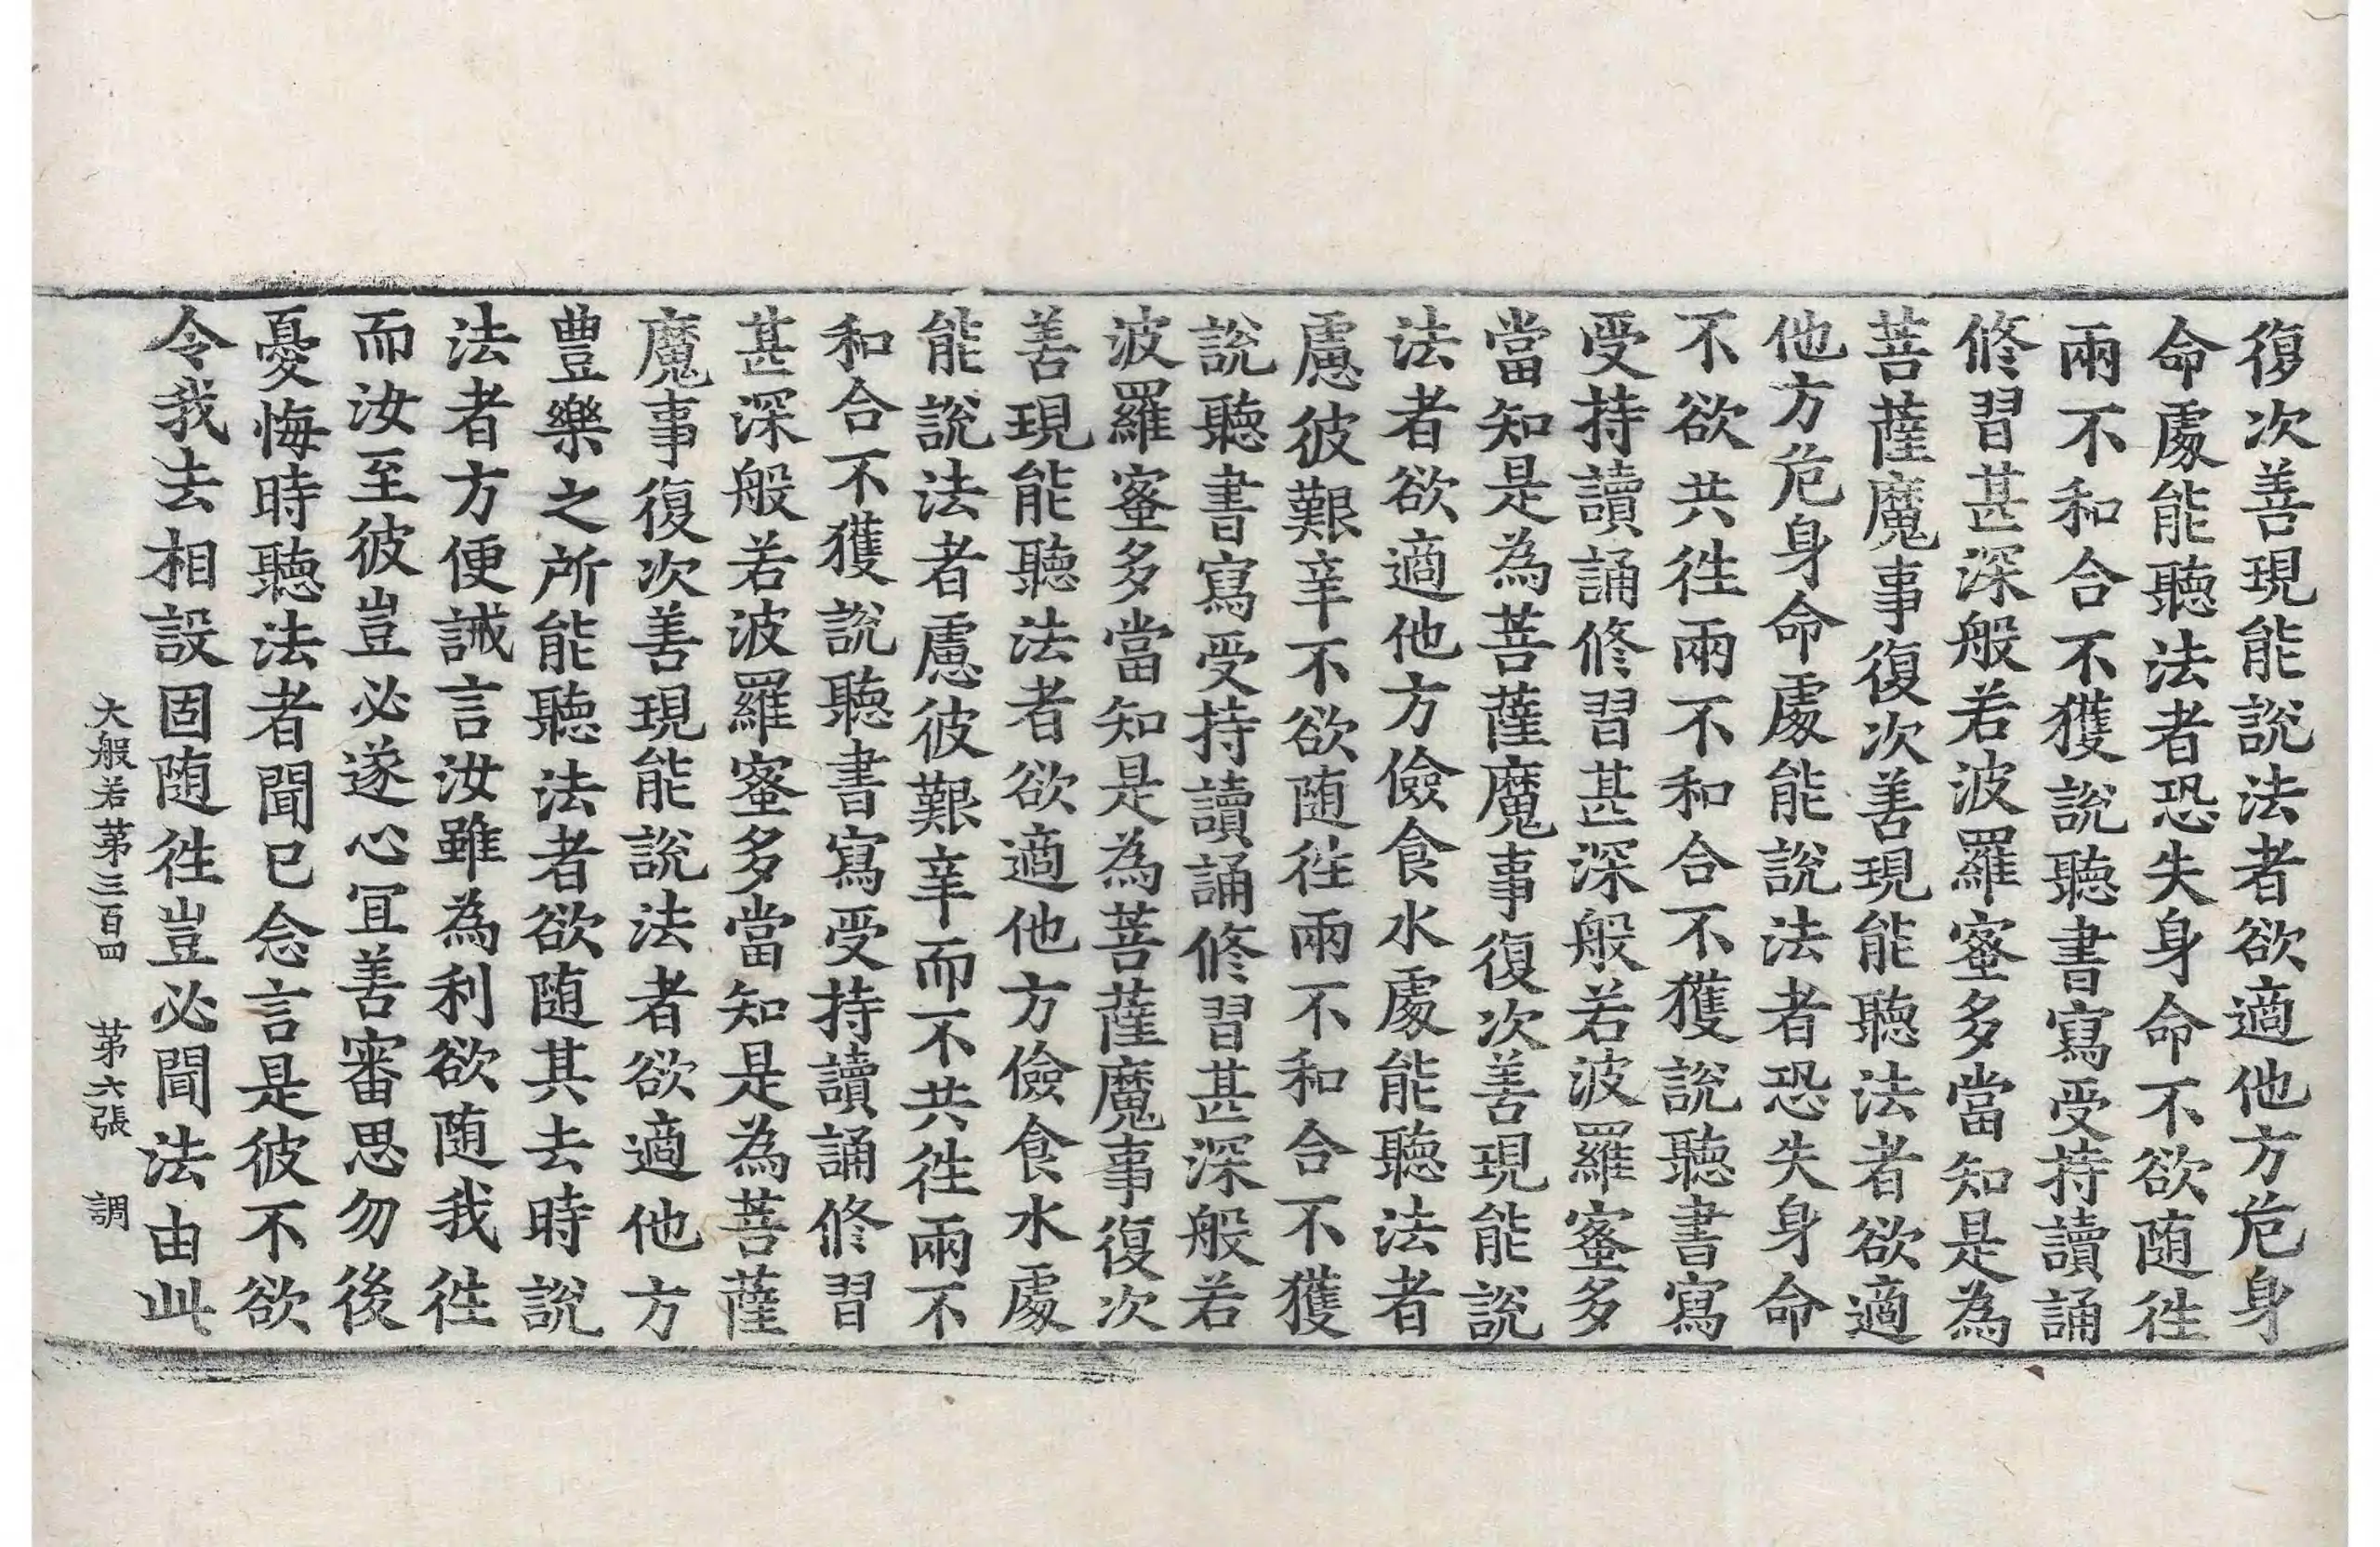 復次善現能說法者欲適他方危身
命處能聽法者恐失身命不欲随徃
兩不和合不獲說聽書寫受持讀誦
修習甚深般若波羅蜜多當知是為
菩薩魔事復次善現能聽法者欲適
他方危身命處能說法者恐失身命
不欲共徃兩不和合不獲說聽書寫
受持讀誦修習甚深般若波羅蜜多
當知是為菩薩魔事復次善現能說
法者欲適他方儉食水處能聽法者
慮彼艱辛不欲随徃兩不和合不獲
說聽書寫受持讀誦修習甚深般若
波羅蜜多當知是為菩薩魔事復次
善現能聽法者欲適他方儉食水處
能說法者慮彼艱辛而不共徃兩不
和合不獲說聽書寫受持讀誦修習
甚深般若波羅蜜多當知是為菩薩
魔事復次善現能說法者欲適他方
豊樂之所能聽法者欲随其去時說
法者方便誡言汝雖為利欲随我徃
而汝至彼豈必遂心冝善審思勿後
憂悔時聽法者聞已念言是彼不欲
令我去相設固随徃豈必聞法由此
大般若苐三百四 苐六張 調